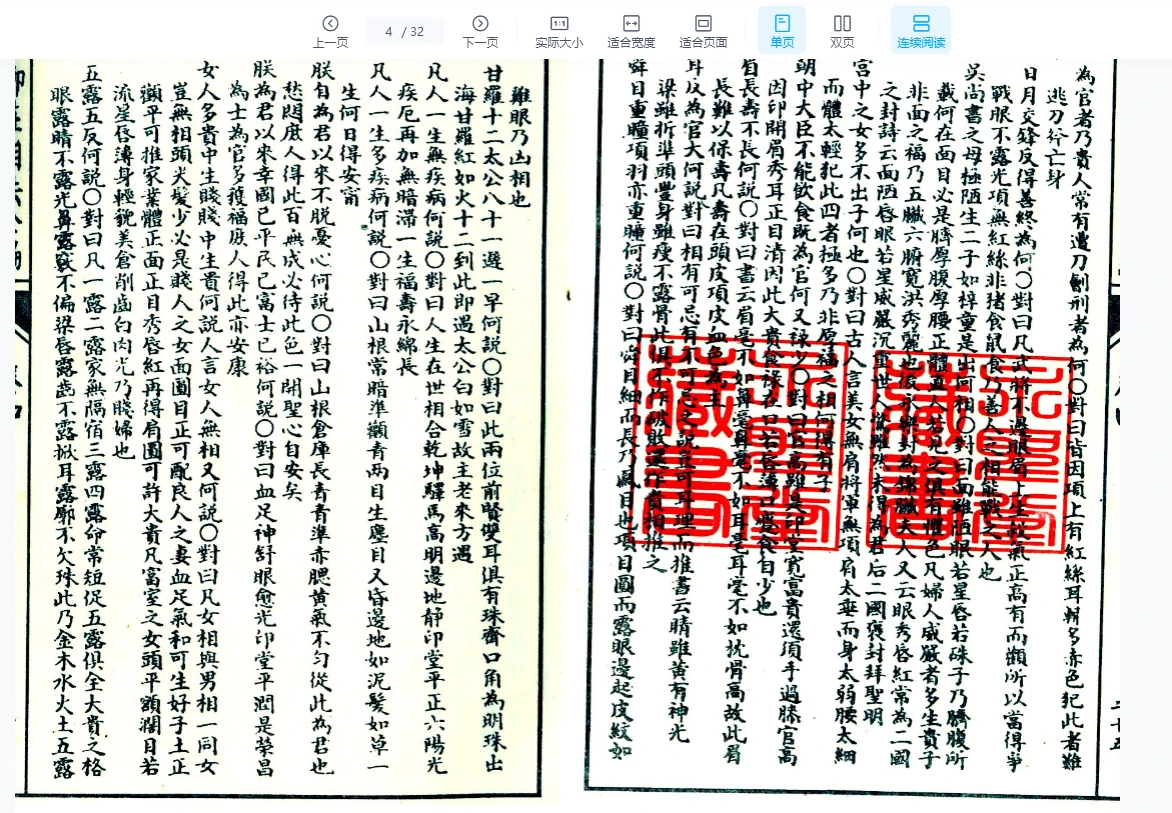 上一页
4 / 32
下一页
实际大小
适合宽度
适合页面
单页
双页
连续阅读
為官者乃貴人常有遭刀劊刑者為何〇對曰皆因項上有紅絲耳輪多赤色犯此者難
逃刀斧亡身
日月交鋒反得善終為何〇對曰凡武將不過眼眉上生殺氣正高有而顴所以當得爭
戰眼不露光項無紅絲非猪食鼠食乃善人之相能戰之人也
吳尚書之母極陋生二子如梓童是出何相〇對曰面雖陋眼若星唇若硃子乃臍腹所
載何在面目必是臍厚腹厚腰正體直人若見之俱有懼色凡婦人威嚴者多生貴子
非面之福乃五臟六腑寬洪秀麗也後永樂封為錦臟夫人又云眼秀唇紅常為二國
之封詩云面陋唇眼若星威嚴沉重世人驚雖然未得為君后二國褒封拜聖明
宮中之女多不出子何也〇對曰古人言美女無肩將軍無項肩太垂而身太弱腰太細
而體太輕犯此四者極多乃非厚福之相何得有子
朝中大臣不能飲食既為官何又祿少〇對曰官高雖是印堂寬富貴還須手過膝官高
因印開眉秀耳正目清因此大貴食祿在口若唇薄口食自少也
眉長壽不長何說〇對曰書云眉毫不如鼻毫鼻毫不如耳毫耳毫不如枕骨高故此眉
長難以保壽凡壽在頭皮項皮血色為主
耳反為官大何說對曰相有可忌有不可忌之說豈可耳理而推書云睛雖黃有神光
梁雖折準頭豐身雖瘦不露骨此俱不作破敗還作貴相推之
舜目重瞳項羽亦重瞳何說〇對曰舜目細而長乃鳳目也項目圓而露眼邊起皮紋如
雞眼乃凶相也
甘羅十二太公八十一遲一早何說〇對曰此兩位前賢雙耳俱有珠齊口角為明珠出
海甘羅紅如火十二到此即遇太公白如雪故主老來方遇
凡人一生無疾病何說〇對曰人生在世相合乾坤驛馬高明邊地静印堂平正六陽光
疾厄再加無暗滞一生福壽永綿長
凡人一生多疾病何説〇對曰山根常暗準顴青两目生塵目又昏邊地如泥髪如草一
生何日得安甯
朕自為君以來不脱憂心何説〇對曰山根倉庫長青青準赤腮黄氣不匀從此為君也
愁悶庶人得此百無成必待此色一開聖心自安矣
朕為君以來幸國已平民已富士已裕何説〇對曰血足神舒眼愈光印堂平潤是榮昌
為士為官多獲福庶人得此亦安康
女人多貴中生賤賤中生貴何説人言女人無相又何説〇對曰凡女相與男相一同女
豈無相頭尖髪少必是賤人之女面圓目正可配良人之妻血足氣和可生好子土正
顴平可推家業體正面正目秀唇紅再得肩圓可許大貴凡富室之女頭平額濶目若
流星唇薄身輕貌美倉削齒白肉光乃賤婦也
五露五反何説〇對曰凡一露二露家無隔宿三露四露命常短促五露俱全大貴之格
眼露睛不露光鼻露竅不偏梁唇露齒不露掀耳露廓不欠珠此乃金木水火土五露